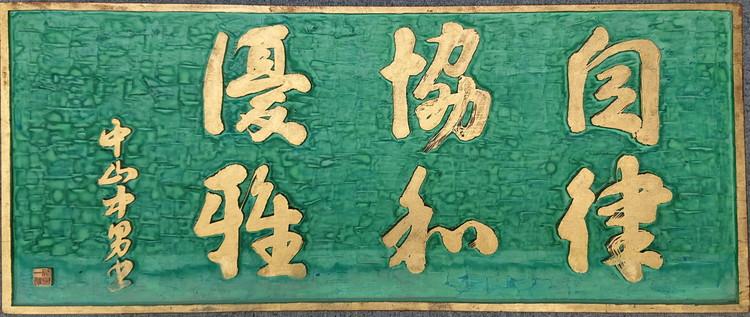 自律
協和
優雅
中山男書